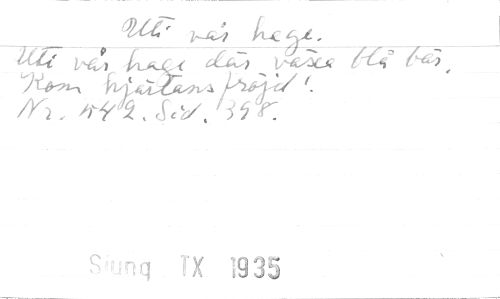 Uti vår hage.
Uti vår hage där växa blå bär.
Kom hjärtans fröjd!
Nr. 542. Sid. 398.
Sjung IX 1935